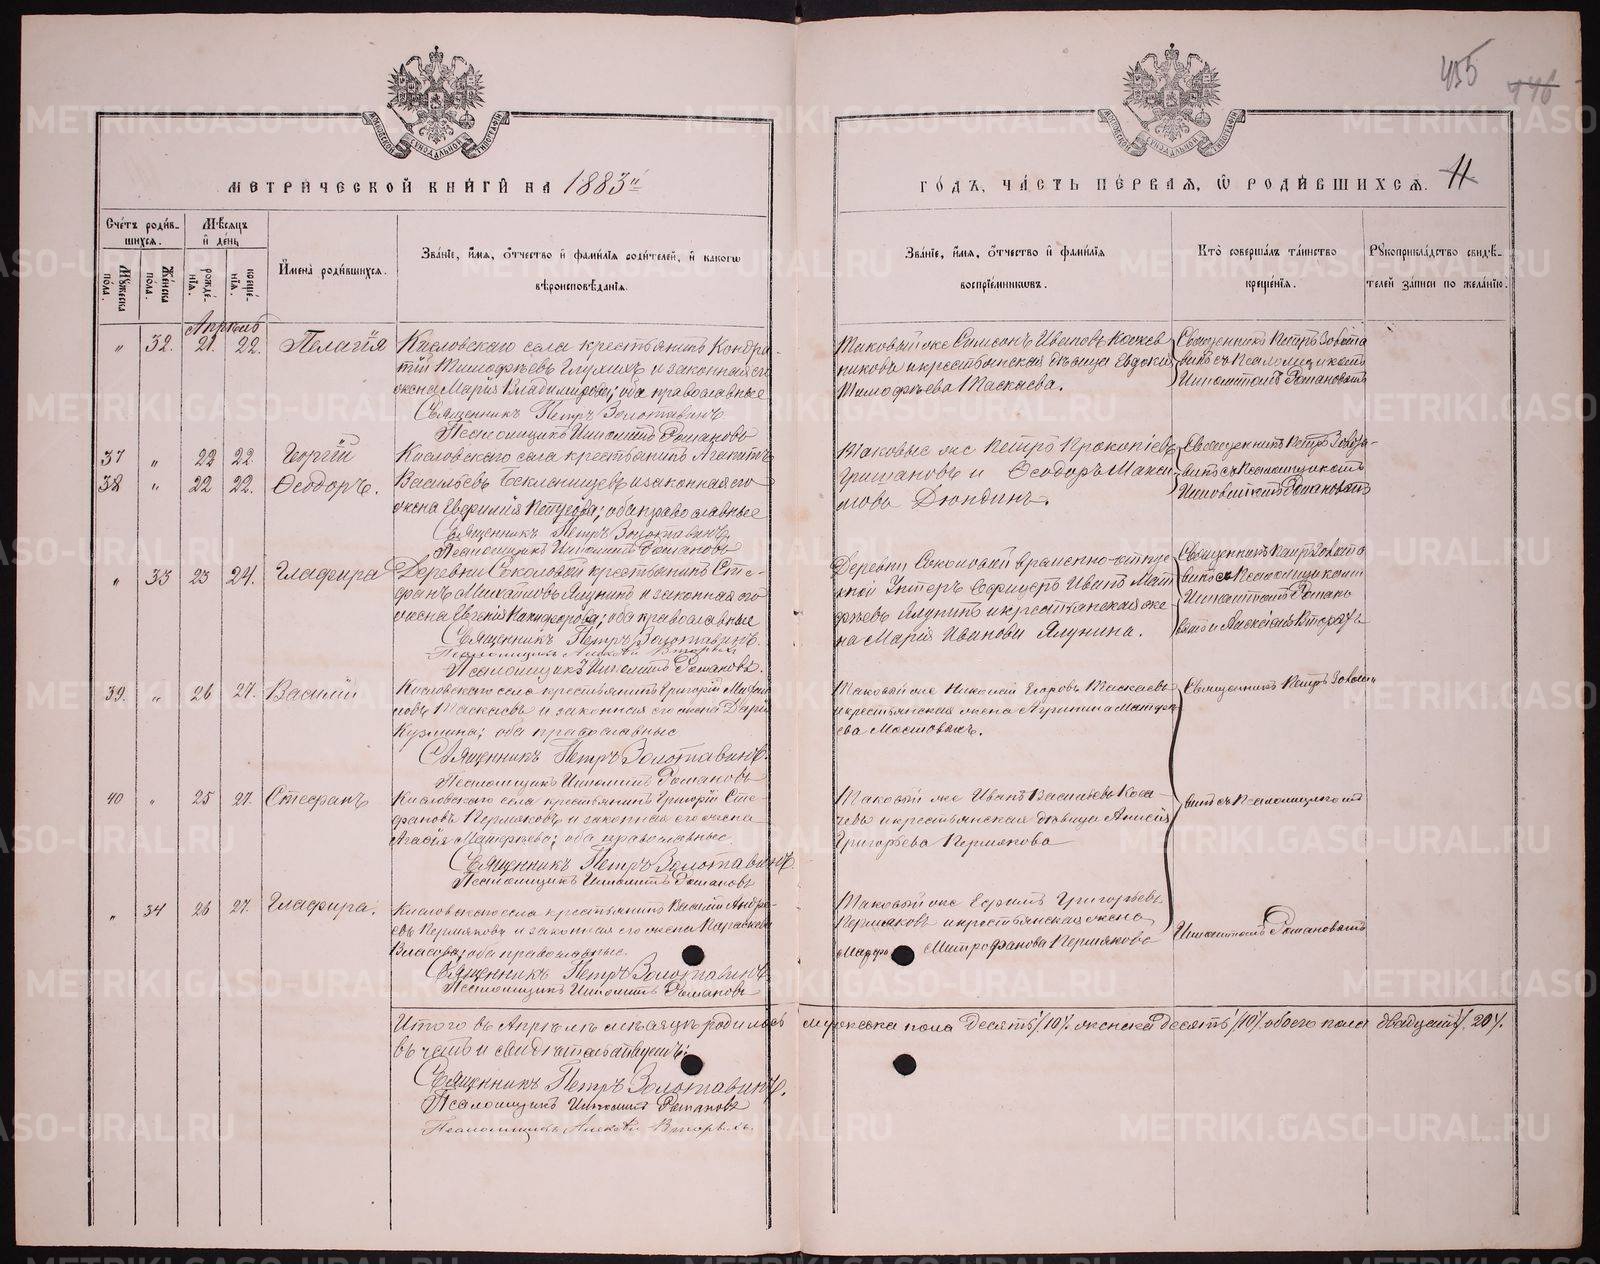 455 446
МЕТРИЧЕСКОЙ КНИГИ НА 1883й
ГОДЪ, ЧАСТЬ ПЕРВАЯ, Ѿ РОДИВШИХСЯ. 11
Счетъ родив-
шихся.
Мужеска пола.
Женска пола.
Мѣсяцъ
и день
рожде-
нія.
креще-
нія.
Имена родившихся.
Званіе, имя, отчество и фамилія родителей, и какого
вѣроисповѣданія.
Званіе, имя, отчество и фамилія
воспріемниковъ.
Кто совершалъ таинство
крещенія.
Рукоприкладство свидѣ-
телей записи по желанію.
Апрель
„ 32. 21. 22. Пелагія Кисловскаго села крестьянинъ Кондра-
тій Тимофѣевъ Глумихъ и законная его
жена Марія Владимирова; оба православные
Священникъ Петръ Золотавинъ
Псаломщикъ Ипполитъ Романовъ
Таковый же Симеонъ Ивановъ
и крестьянская дѣвица Евдокія
Тимофѣева Таскаева.
Священникъ Петръ Золота-
винъ съ Псаломщикомъ
Ипполитомъ Романовымъ
37 „ 22 22 Георгій Кисловскаго села крестьянинъ
38 „ 22 22. Ѳеодоръ. Васильевъ Бекленищевъ и законная его
жена Евфимія; оба православные
Священникъ Петръ Золотавинъ
Псаломщикъ Ипполитъ Романовъ
Таковые же Петръ Прокопіевъ
Гришановъ и Ѳеодоръ Макси-
мовъ Дюндинъ.
Священникъ Петръ Золота-
винъ съ Псаломщикомъ
Ипполитомъ Романовымъ
„ 33 23 24. Глафира Деревни Соколовой крестьянинъ Сте-
фанъ Михайловъ Ялунинъ и законная его
жена Евгенія Никифорова; оба православные
Священникъ Петръ Золотавинъ.
Псаломщикъ Алексѣй Вторыхъ
Псаломщикъ Ипполитъ Романовъ.
Деревни Соколовой временно-отпус-
кной Унтеръ Офицеръ Иванъ Мат-
фѣевъ Ялунинъ и крестьянская же-
на Марія Иванова Ялунина.
Священникъ Петръ Золота-
винъ съ Псаломщиками
Ипполитомъ Романо-
вымъ и Алексѣемъ Вторых
39. „ 26 27. Василій Кисловскаго села крестьянинъ Григорій
Таскаевъ и законная его жена Дарія
Кузмина; оба православные
Священникъ Петръ Золотавинъ.
Псаломщикъ Ипполитъ Романовъ
Таковый же Николай Егоровъ Таскаевъ
и крестьянская жена Агрипина Матфѣ-
ева Мостовыхъ.
Священникъ Петръ Золота-
40 „ 25 27. Стефанъ Кисловскаго села крестьянинъ Григорій Сте-
фановъ Пермяковъ и законная его жена
Агафія; оба православные.
Священникъ Петръ Золотавинъ
Псаломщикъ Ипполитъ Романовъ
Таковый же Иванъ Васильевъ Коса-
чевъ и крестьянская дѣвица Анисія
Григорьева Пермякова
винъ съ Псаломщикомъ
„ 34 26 27. Глафира. Кисловскаго села крестьянинъ Василій Андре-
евъ Пермяковъ и законная его жена Параскева
Власова; оба православные.
Священникъ Петръ Золотавинъ
Псаломщикъ Ипполитъ Романовъ
Таковый же Ефимъ Григорьевъ
Пермяковъ и крестьянская жена
Митрофанова Пермякова
Ипполитомъ Романовымъ
Итого въ Апрѣлѣ мѣсяцѣ родилось мужеска пола десять /10/. женска десять /10/. обоего пола двадцать /20/.
въ чемъ и свидѣтельствуемъ:
Священникъ Петръ Золотавинъ.
Псаломщикъ Ипполитъ Романовъ
Псаломщикъ Алексѣй Вторыхъ.
METRIKI.GASO-URAL.RU